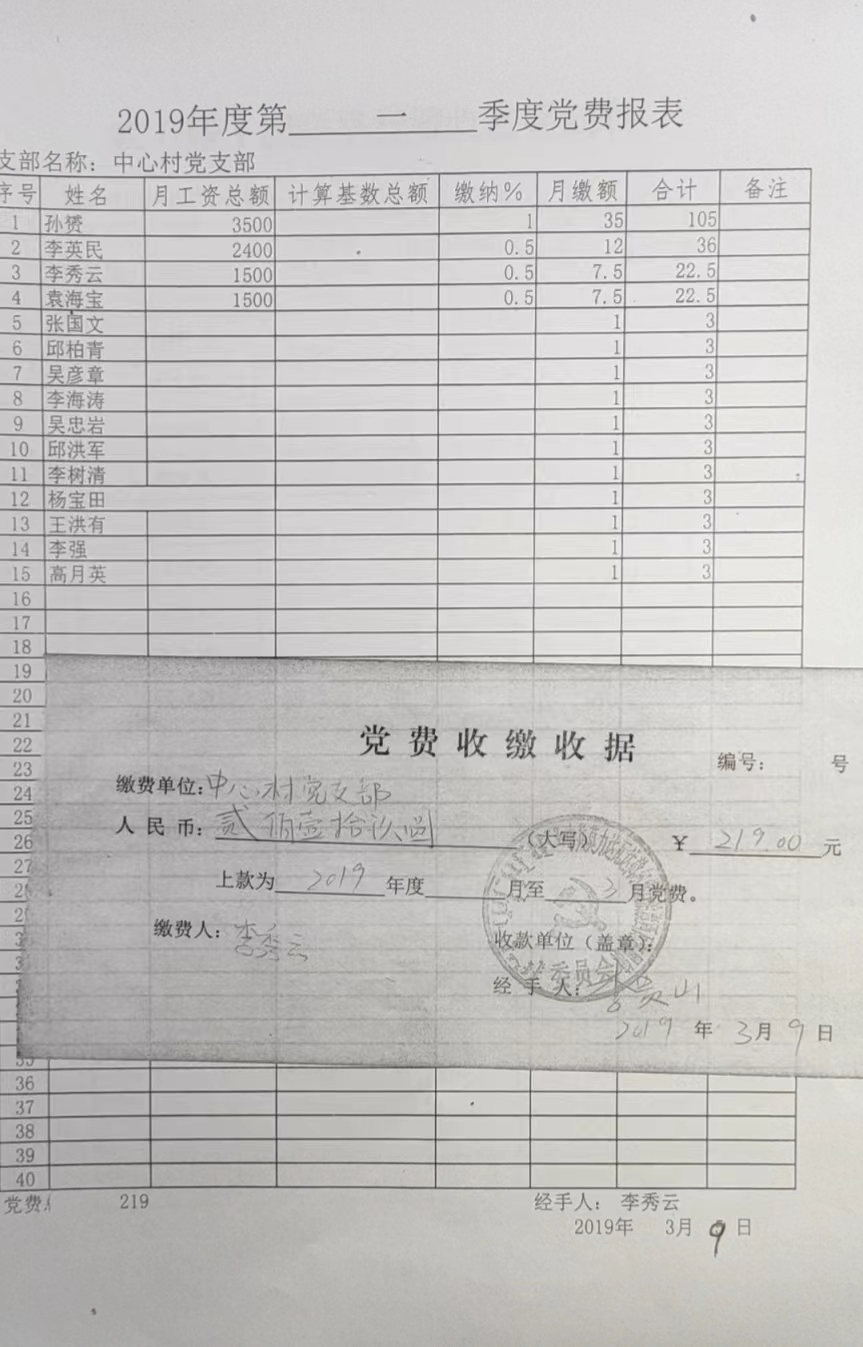 2019年度第一季度党费报表
支部名称：中心村党支部
序号 姓名 月工资总额 计算基数总额 缴纳% 月缴额 合计 备注
1 孙赟 3500 1 35 105
2 李英民 2400 0.5 12 36
3 李秀云 1500 0.5 7.5 22.5
4 袁海宝 1500 0.5 7.5 22.5
5 张国文 1 3
6 邱柏青 1 3
7 吴彦章 1 3
8 李海涛 1 3
9 吴忠岩 1 3
10 邱洪军 1 3
11 李树清 1 3
12 杨宝田 1 3
13 王洪有 1 3
14 李强 1 3
15 高月英 1 3
16
17
18
19
20
21
22
23
24
25
26
27
党费收缴收据
编号： 号
缴费单位：中心村党支部
人民币：贰佰壹拾玖圆 （大写） ￥ 219.00 元
上款为 2019 年度 月至 3 月党费。
缴费人：李秀云
收款单位（盖章）：
委员会
经手人：
2019 年 3月 9 日
36
37
38
39
40
党费 219 经手人： 李秀云
2019年 3月 9 日